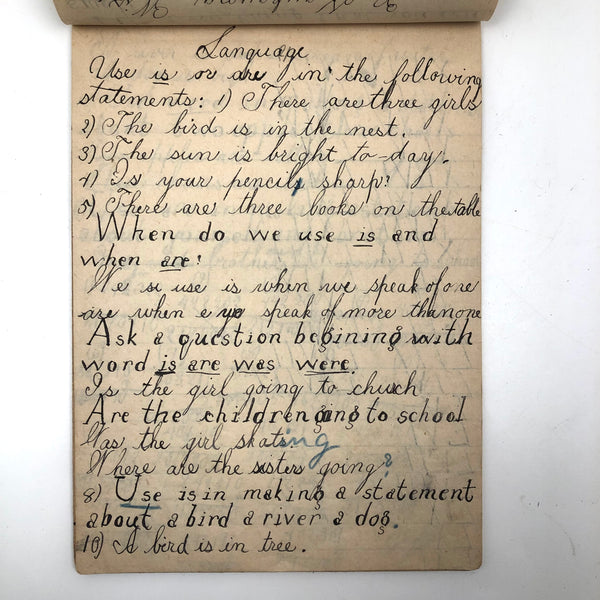 Language
Use is or are in the following
statements: 1) There are three girls
2) The bird is in the nest.
3) The sun is bright to-day.
4) Is your pencil, sharp?
5) There are three books on the table
When do we use is and
when are?
We si use is when we speak of one
are when e ye speak of more than one
Ask a question begining with
word is are was were.
Is the girl going to chuch
Are the children going to school
Was the girl skating
Where are the sisters going?
8) Use is in making a statement
about a bird a river a dog.
10) A bird is in tree.